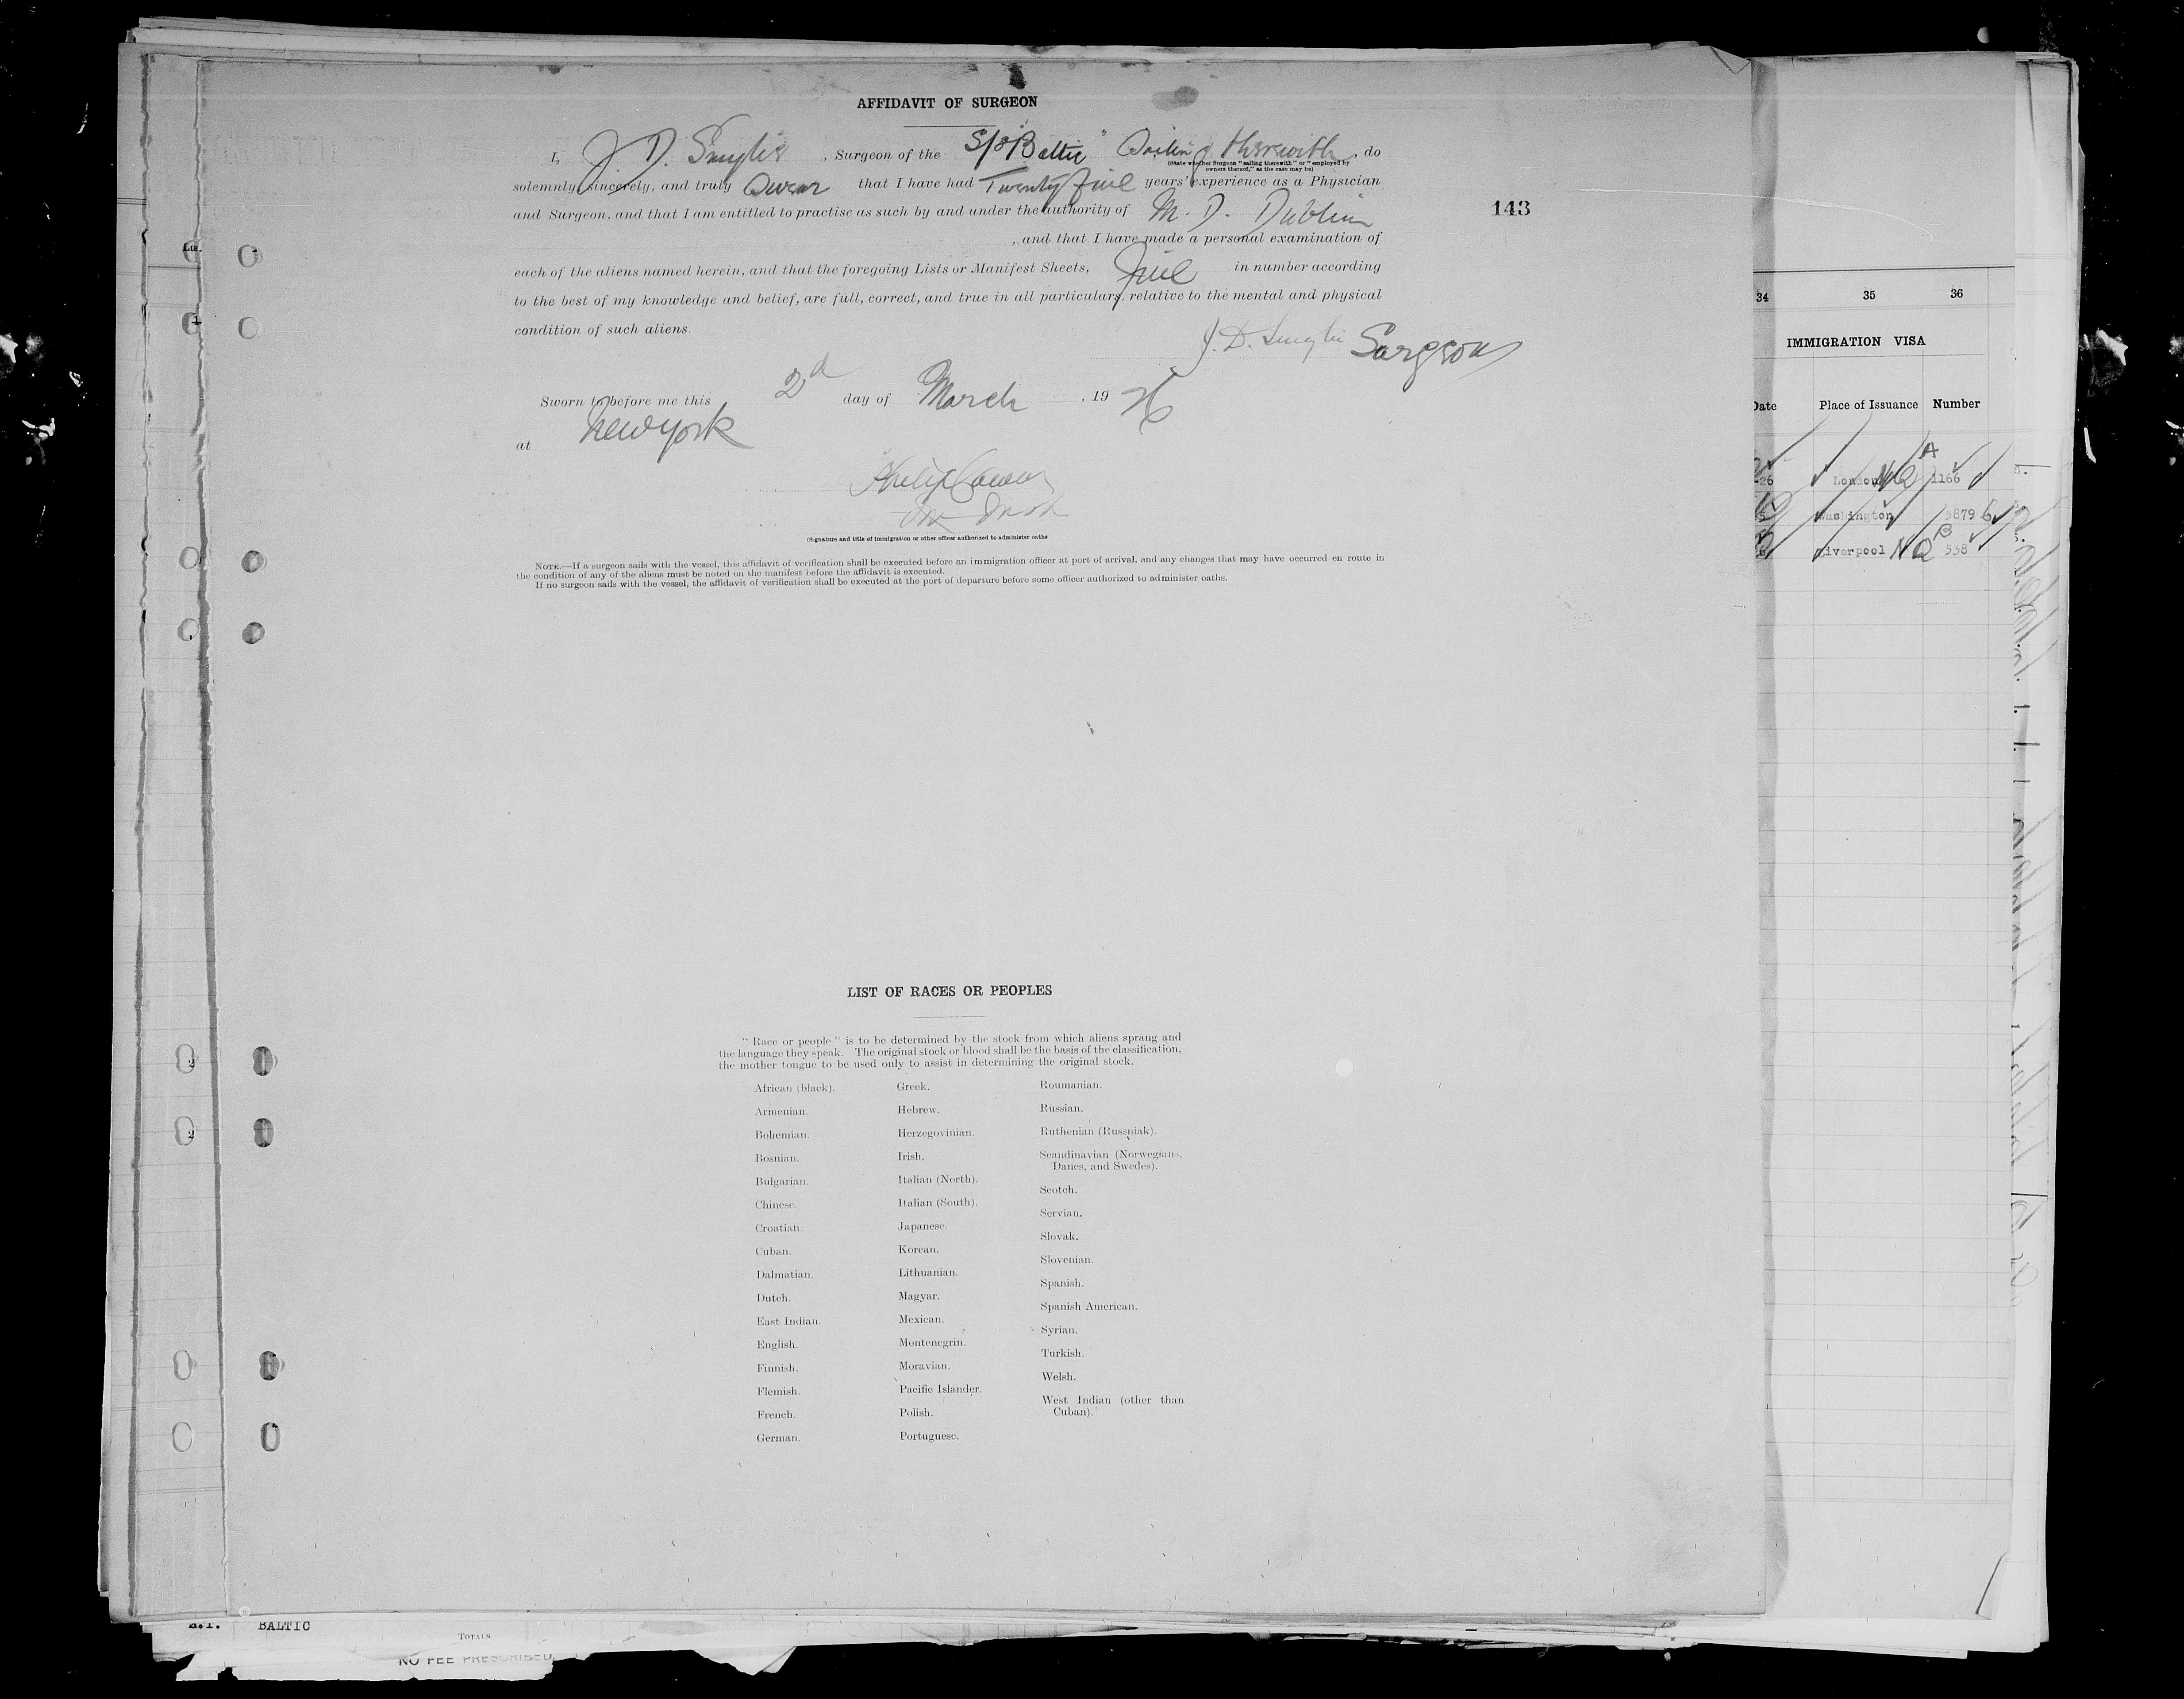 AFFIDAVIT OF SURGEON
I, J. D. Smylie, Surgeon of the S/S "Baltic" Sailing therewith, do
(State whether Surgeon "sailing therewith" or "employed by
owners thereof," as the case may be)
solemnly, sincerely, and truly Swear that I have had Twenty five years' experience as a Physician
and Surgeon, and that I am entitled to practise as such by and under the authority of M. D. Dublin
143
, and that I have made a personal examination of
each of the aliens named herein, and that the foregoing Lists or Manifest Sheets, five in number according
to the best of my knowledge and belief, are full, correct, and true in all particulars, relative to the mental and physical
condition of such aliens.
J. D. Smylie Surgeon
Sworn to before me this 2d day of March, 1926
at New York
Philip Cowen
(Signature and title of immigration or other officer authorized to administer oaths
NOTE.—If a surgeon sails with the vessel, this affidavit of verification shall be executed before an immigration officer at port of arrival, and any changes that may have occurred en route in
the condition of any of the aliens must be noted on the manifest before the affidavit is executed.
If no surgeon sails with the vessel, the affidavit of verification shall be executed at the port of departure before some officer authorized to administer oaths.
LIST OF RACES OR PEOPLES
"Race or people" is to be determined by the stock from which aliens sprang and
the language they speak. The original stock or blood shall be the basis of the classification,
the mother tongue to be used only to assist in determining the original stock.
African (black).
Armenian.
Bohemian.
Bosnian.
Bulgarian.
Chinese.
Croatian.
Cuban.
Dalmatian.
Dutch.
East Indian.
English.
Finnish.
Flemish.
French.
German.
Greek.
Hebrew.
Herzegovinian.
Irish.
Italian (North).
Italian (South).
Japanese.
Korean.
Lithuanian.
Magyar.
Mexican.
Montenegrin.
Moravian.
Pacific Islander.
Polish.
Portuguese.
Roumanian.
Russian.
Ruthenian (Russniak).
Scandinavian (Norwegians,
Danes, and Swedes).
Scotch.
Servian.
Slovak.
Slovenian.
Spanish.
Spanish American.
Syrian.
Turkish.
Welsh.
West Indian (other than
Cuban).
34 35 36
IMMIGRATION VISA
Date Place of Issuance Number
26 London NQ A 1166
Washington 5879
Liverpool NQ B 538
BALTIC
TOTALS
NO FEE PRESCRIBED